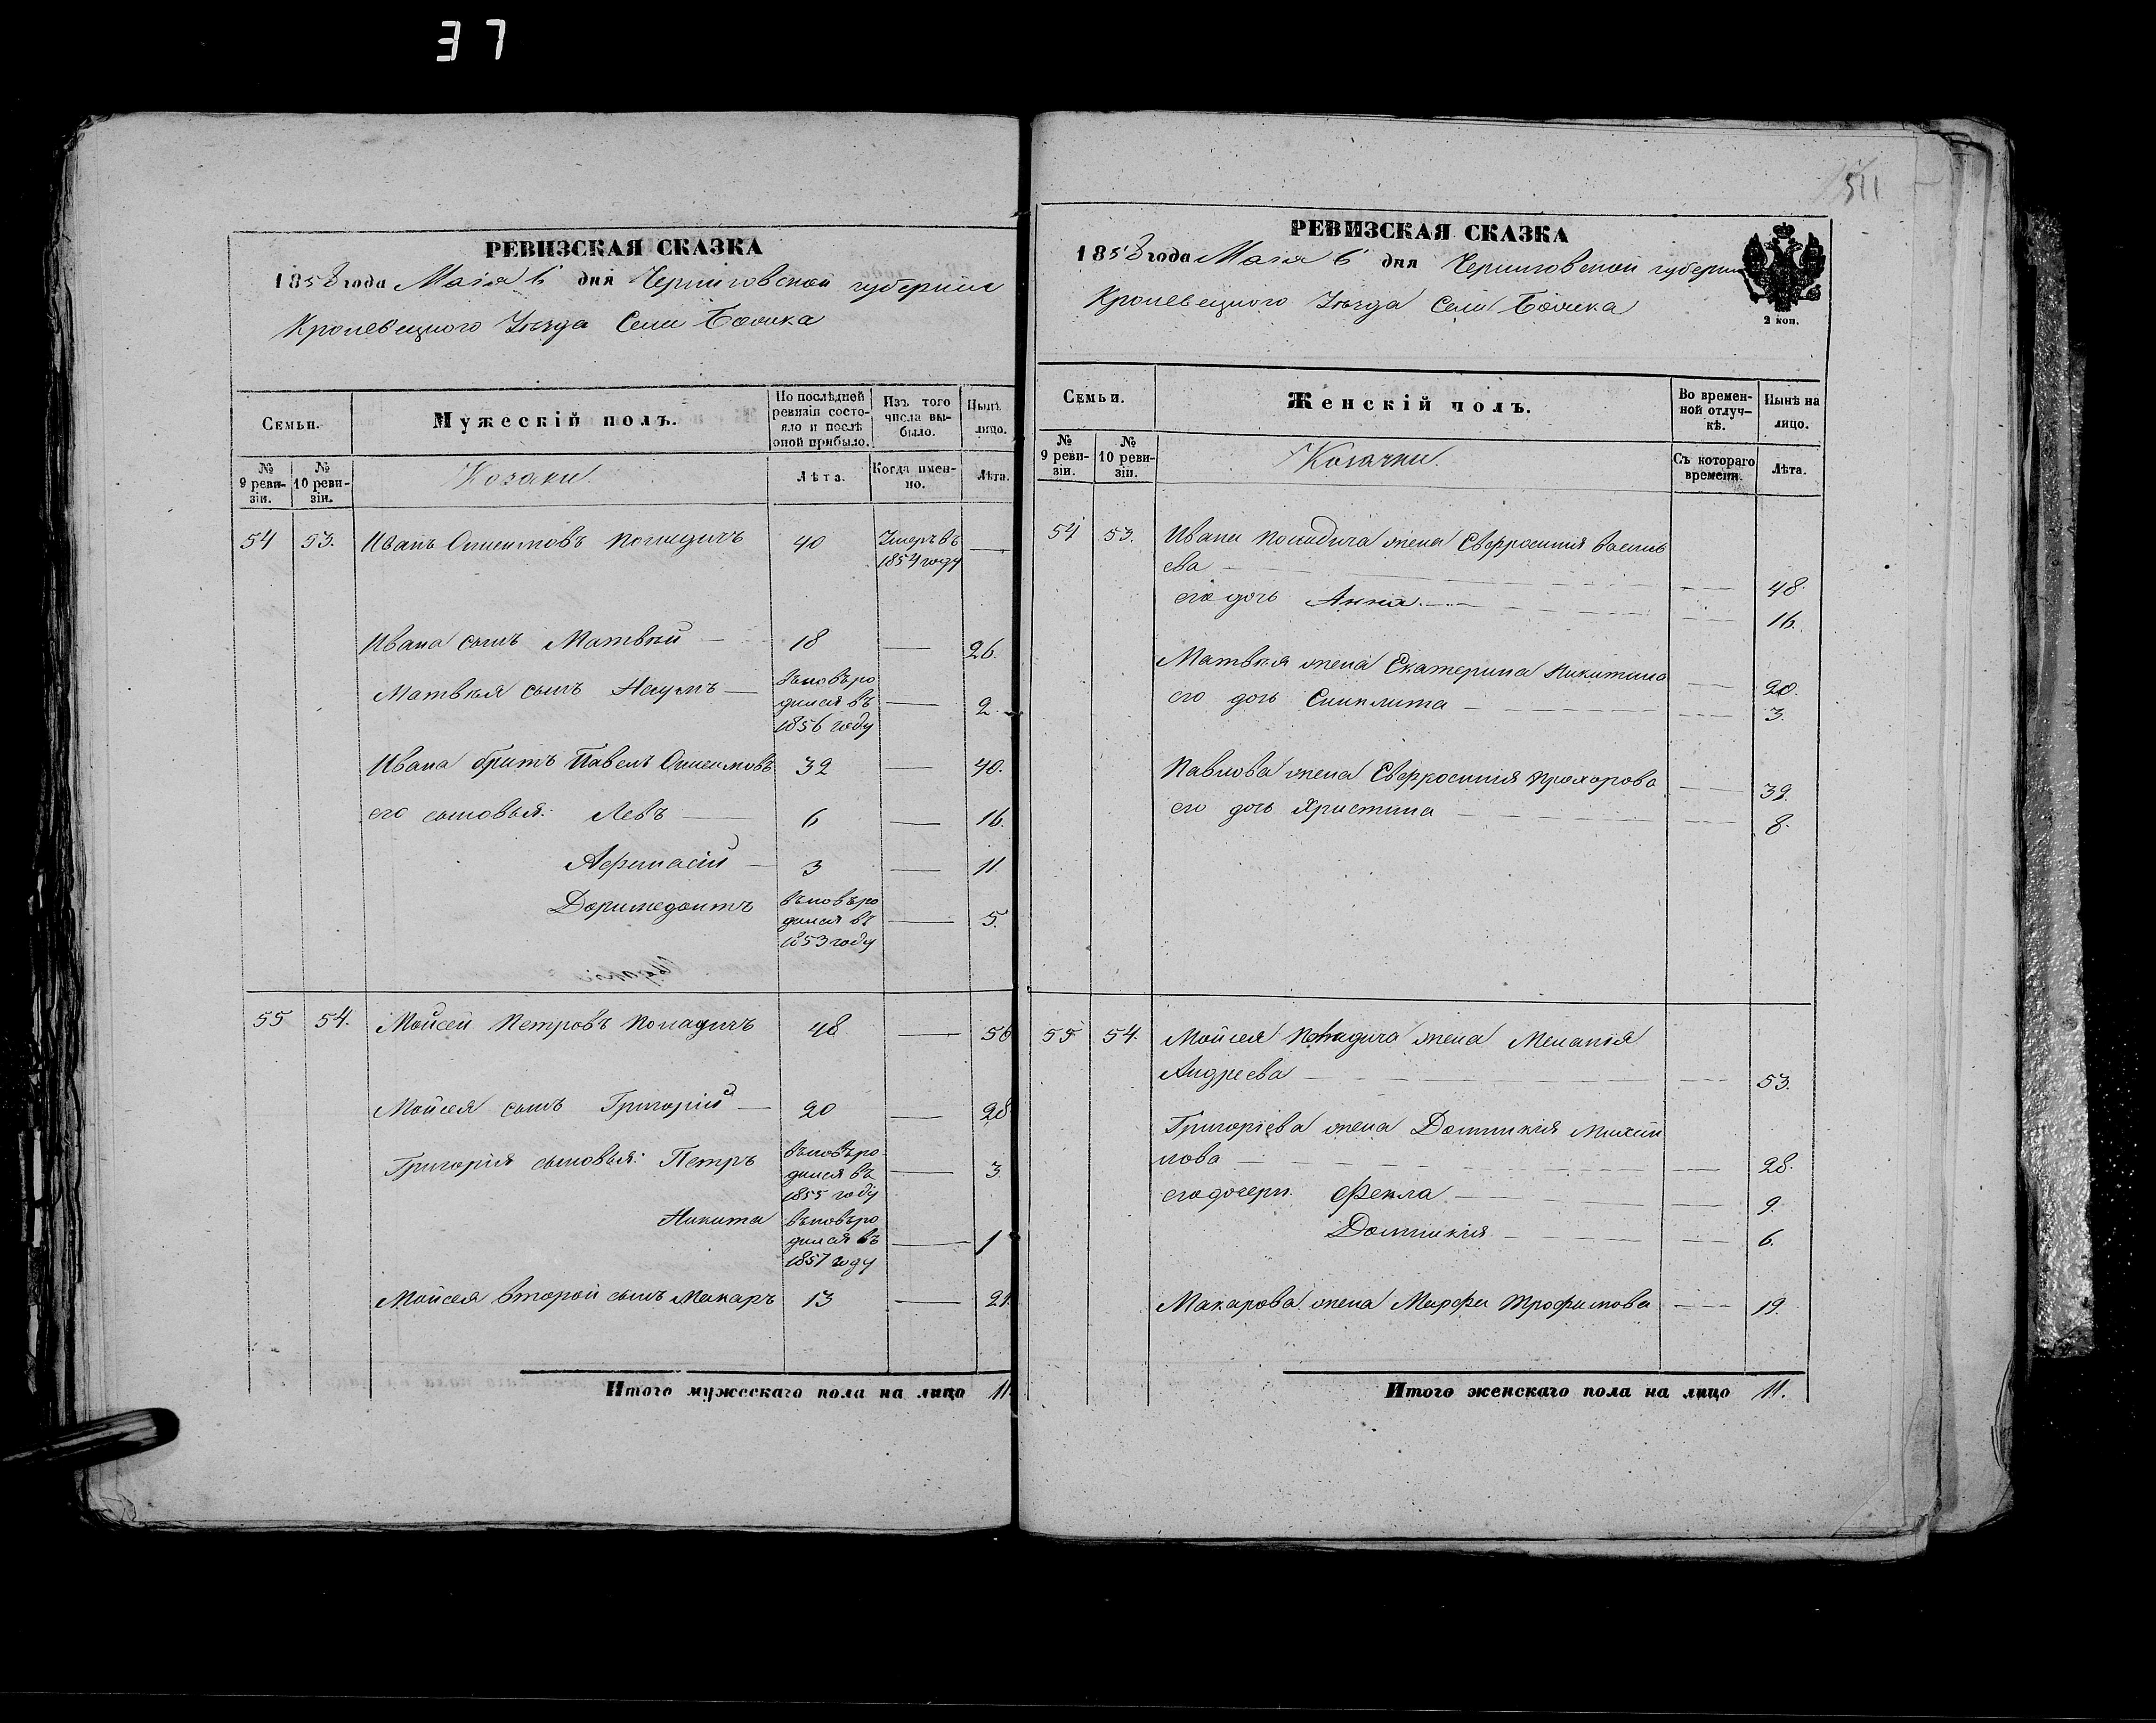 37
РЕВИЗСКАЯ СКАЗКА
1858 года Маія 6 дня Черниговской губерніи
Кролевецкого Уѣзда Села
Семьи.
Мужескій полъ.
По послѣдней ревизіи состояло и послѣ оной прибыло.
Изъ того числа выбыло.
Нынѣ лицо.
№ 9 ревизіи.
№ 10 ревизіи.
Козаки.
Лѣта.
Когда именно.
Лѣта.
54 53. Иванъ Онисимовъ 40 Умеръ въ 1854 году —
Ивана сынъ Матвѣй — 18 — 26.
Матвѣя сынъ Наумъ — вновь родился въ 1856 году — 2.
Ивана братъ Павелъ Онисимовъ 32 — 40.
его сыновья: Левъ — 6 — 16.
Афанасій — 3 — 11.
Доримедонтъ вновь родился въ 1853 году — 5.
55 54. Мойсей Петровъ 48 — 56
Мойсея сынъ Григорій — 20 — 28
Григорія сыновья: Петръ вновь родился въ 1855 году — 3.
Никита вновь родился въ 1857 году — 1
Мойсея второй сынъ Макаръ 13 — 21.
Итого мужескаго пола на лицо 11.
511
РЕВИЗСКАЯ СКАЗКА
1858 года Маія 6 дня Черниговской губерніи
Кролевецкого Уѣзда Села
2 коп.
Семьи.
Женскій полъ.
Во временной отлучкѣ.
Нынѣ на лицо.
№ 9 ревизіи.
№ 10 ревизіи.
Козачки.
Съ котораго времени.
Лѣта.
54 53. Ивана жена Евфросинія Василь
ева — — 48.
его дочь Анна — — 16.
Матвѣя жена Екатерина Никитина — 20.
его дочь Синклита — — 3.
Павлова жена Евфросинія Прохорова — 39.
его дочь Христина — — 8.
55 54. Мойсея жена Меланія
Андреева — — 53.
Григоріева жена Домникія Михай
лова — — 28.
его дочери. Фекла — — 9.
Домникія — — 6.
Макарова жена Марфа Трофимова — 19.
Итого женскаго пола на лицо 11.